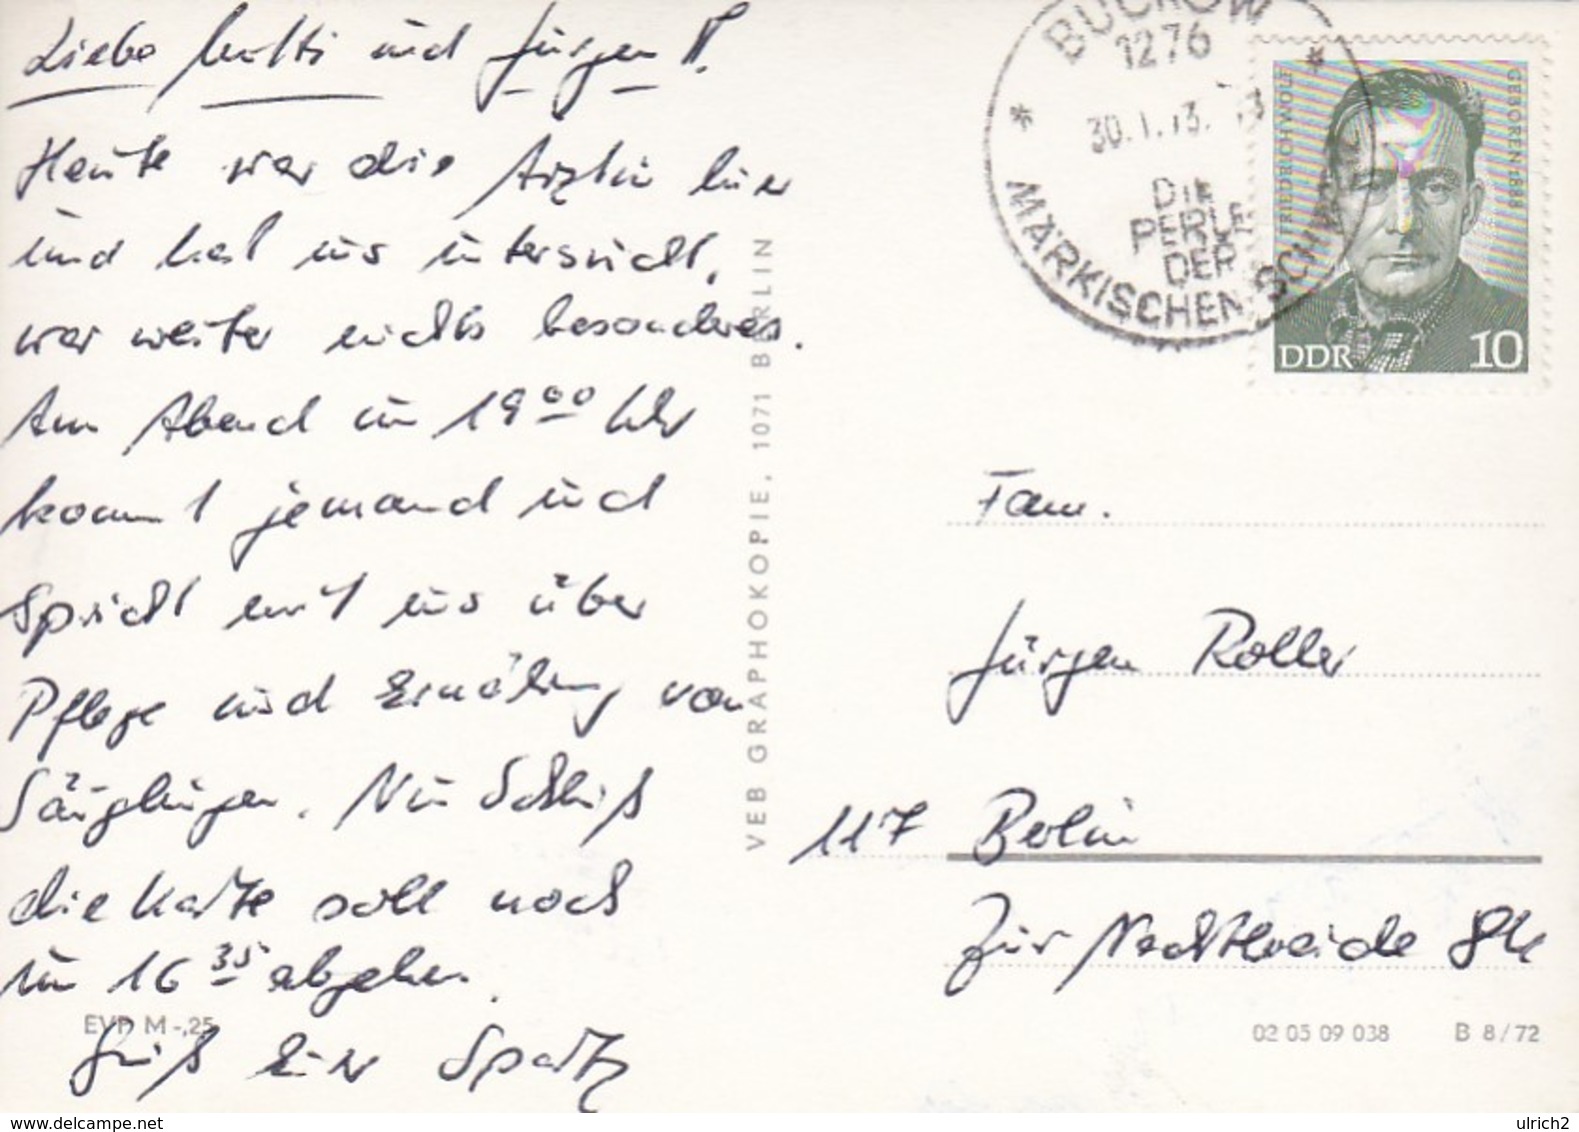 Liebe Mutti und Jürgen!!
Heute war die Ärztin hier
und hat uns untersucht,
war weiter nichts besonderes.
Am Abend um 19⁰⁰ Uhr
kommt jemand und
spricht mit uns über
Pflege und Ernährung von
Säuglingen. Nun Schluß
die Karte soll noch
um 16³⁵ abgehen.
Gruß Eur Spatz
EVP M -,25
VEB GRAPHOKOPIE, 1071 BERLIN
BUCKOW
1276
30.1.73.
DIE
PERLE
DER
MÄRKISCHEN SCHWEIZ
FRIEDRICH WOLF
GEBOREN 1888
DDR 10
Fam.
Jürgen Roller
117 Berlin
Zur Nachtheide 84
02 05 09 038 B 8/72
delcampe.net
ulrich2